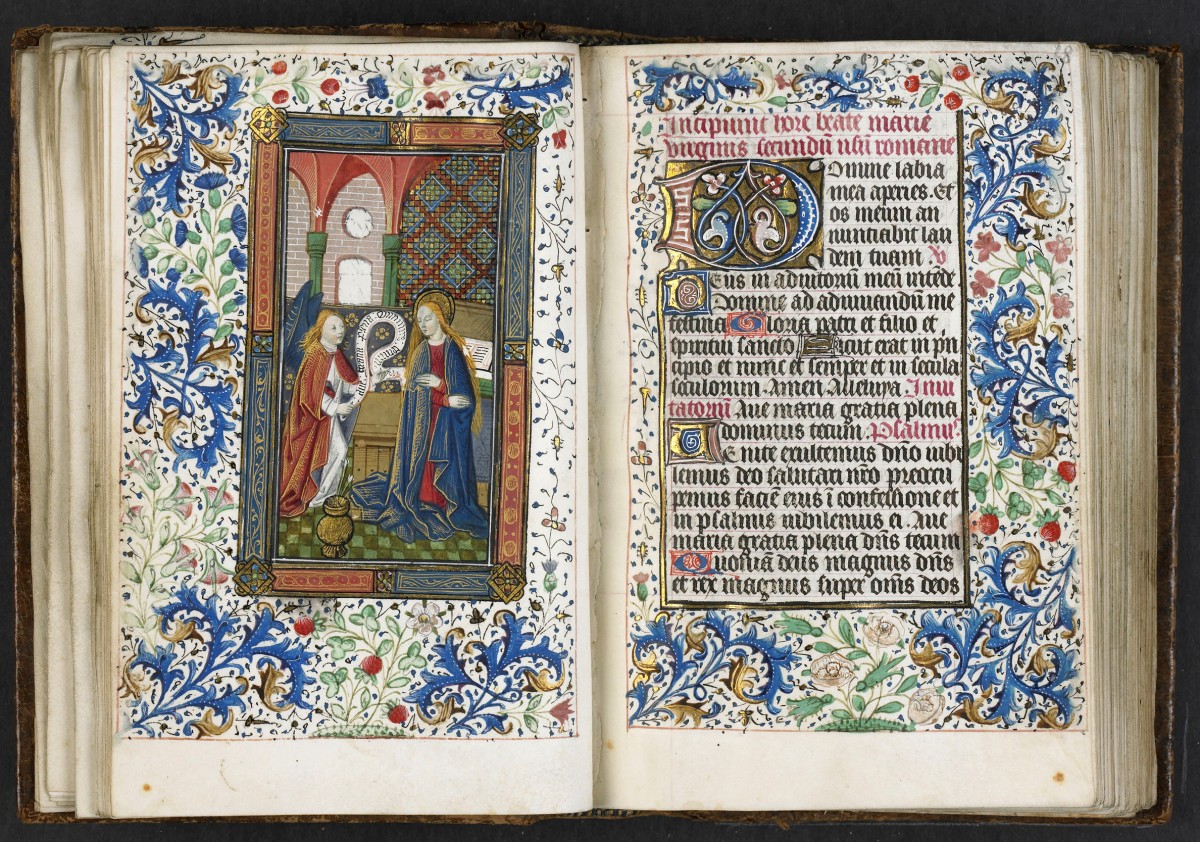 aue maria gratia plena dominus tecum
Incipiunt hore beate marie
virginis secundū usū romane
Domine labia
mea apries. et
os meum an
nunciabit lau
dem tuam V
Deus in adiutoriū meū intēde
Domine ad adiuuandū me
festina Gloria patri et filio et
spiritui sancto Sicut erat in pri
cipio et nunc et semper et in secula
seculorum Amen Alleluya Inui
tatoriū Aue maria gratia plena
dominus tecum. Psalmus
Uenite exultemus dn̄o iubi
lemus deo salutari nr̄o preoccu
pemus faciē eius ī confessione et
in psalmis iubilemus ei. Aue
maria gratia plena dn̄s tecum
Quoniā deus magnus dn̄s
et rex magnus super om̄s deos